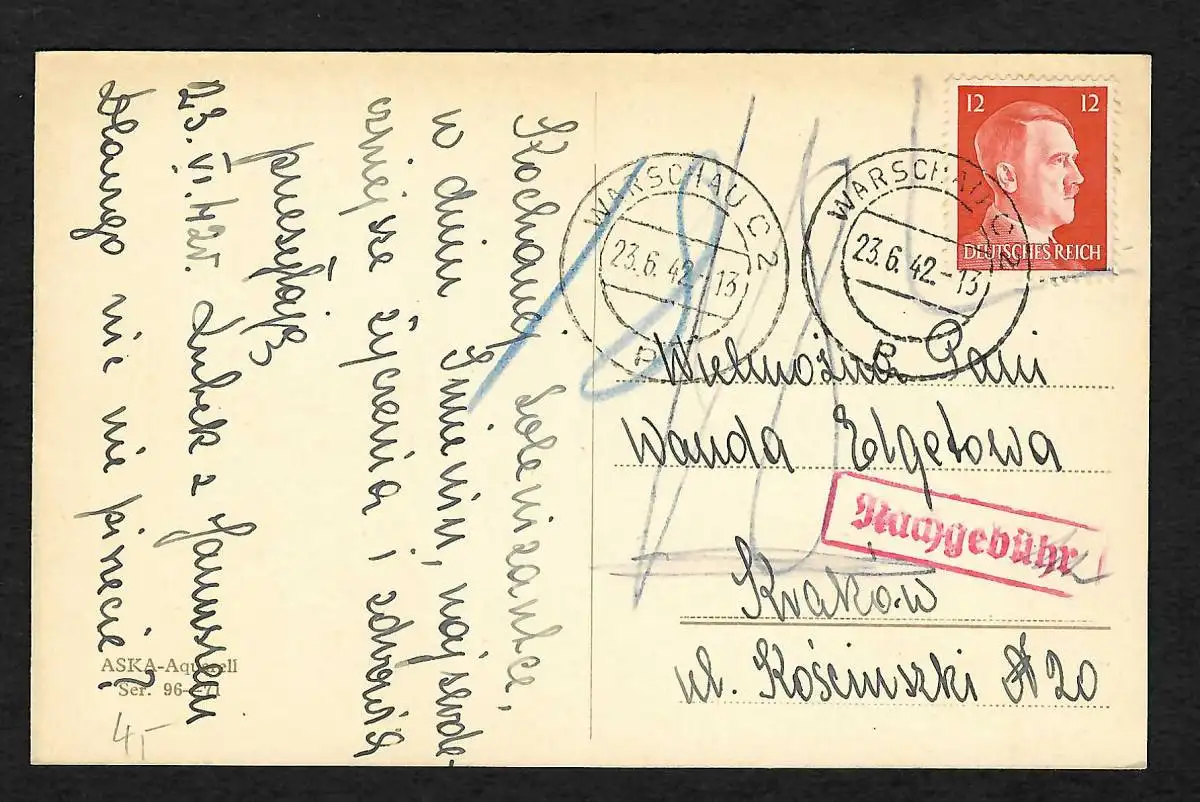 Kochanej Solenizantce,
w dniu Imienin, najserde-
czniejsze życzenia i zdrowia
przesyłają
23.VI.42r. Lubek z Hanusią
Dlaczego nic nie piszecie?
ASKA-Aquarell
Ser. 96-71
4,-
WARSCHAU C2
23.6.42.-13
WARSCHAU C2
23.6.42.-13
12 12
DEUTSCHES REICH
Wielmożna Pani
Wanda Elgetowa
Nachgebühr
Kraków
ul. Kościuszki 20